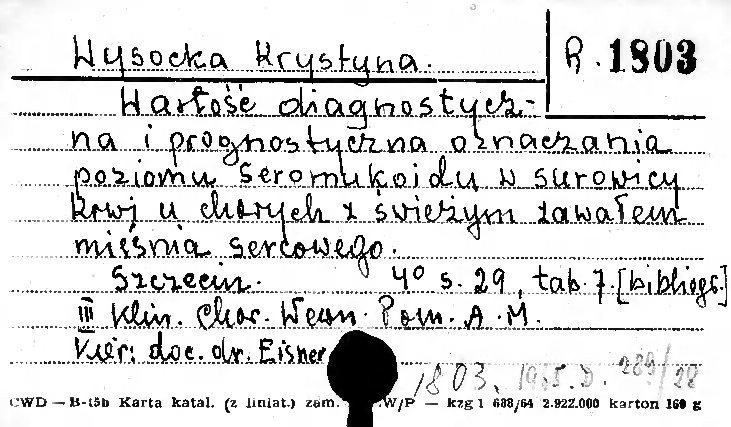 Wysocka Krystyna. R. 1803
Wartość diagnostycz-
na i prognostyczna oznaczania
poziomu seromukoidu w surowicy
krwi u chorych z świeżym zawałem
mięśnia sercowego.
Szczecin. 4° s. 29, tab. 7. [bibliogr.]
III Klin. Chor. Wewn. Pom. A. M.
Kier: doc. dr. Eisner
1803. D. 289/28
CWD — B-15b Karta katal. (z liniat.) zam. W/P — kzg 1 688/64 2.922.000 karton 160 g